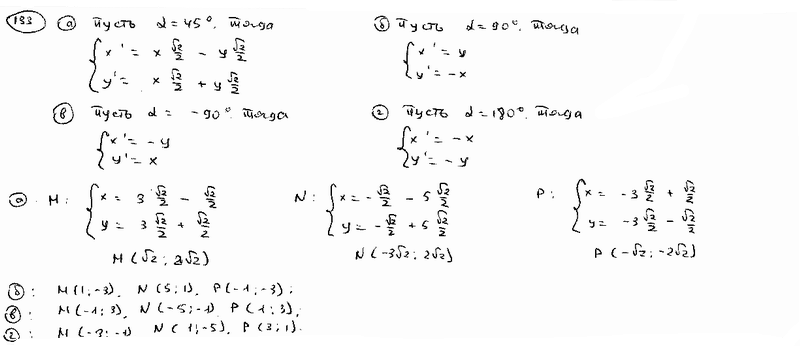 133 а) Пусть α = 45°. Тогда
{ x' = x √2/2 - y √2/2
y' = x √2/2 + y √2/2
б) Пусть α = 90°. Тогда
{ x' = y
y' = -x
в) Пусть α = -90°. Тогда
{ x' = -y
y' = x
г) Пусть α = 180°. Тогда
{ x' = -x
y' = -y
а) M: { x = 3 √2/2 - √2/2
y = 3 √2/2 + √2/2
M(√2; 2√2)
N: { x = -√2/2 - 5 √2/2
y = -√2/2 + 5 √2/2
N(-3√2; 2√2)
P: { x = -3 √2/2 + √2/2
y = -3 √2/2 - √2/2
P(-√2; -2√2)
б: M(1; -3), N(5; 1), P(-1; -3);
в: M(-1; 3), N(-5; -1), P(1; 3);
г: M(-3; -1) N(1; -5), P(3; 1).